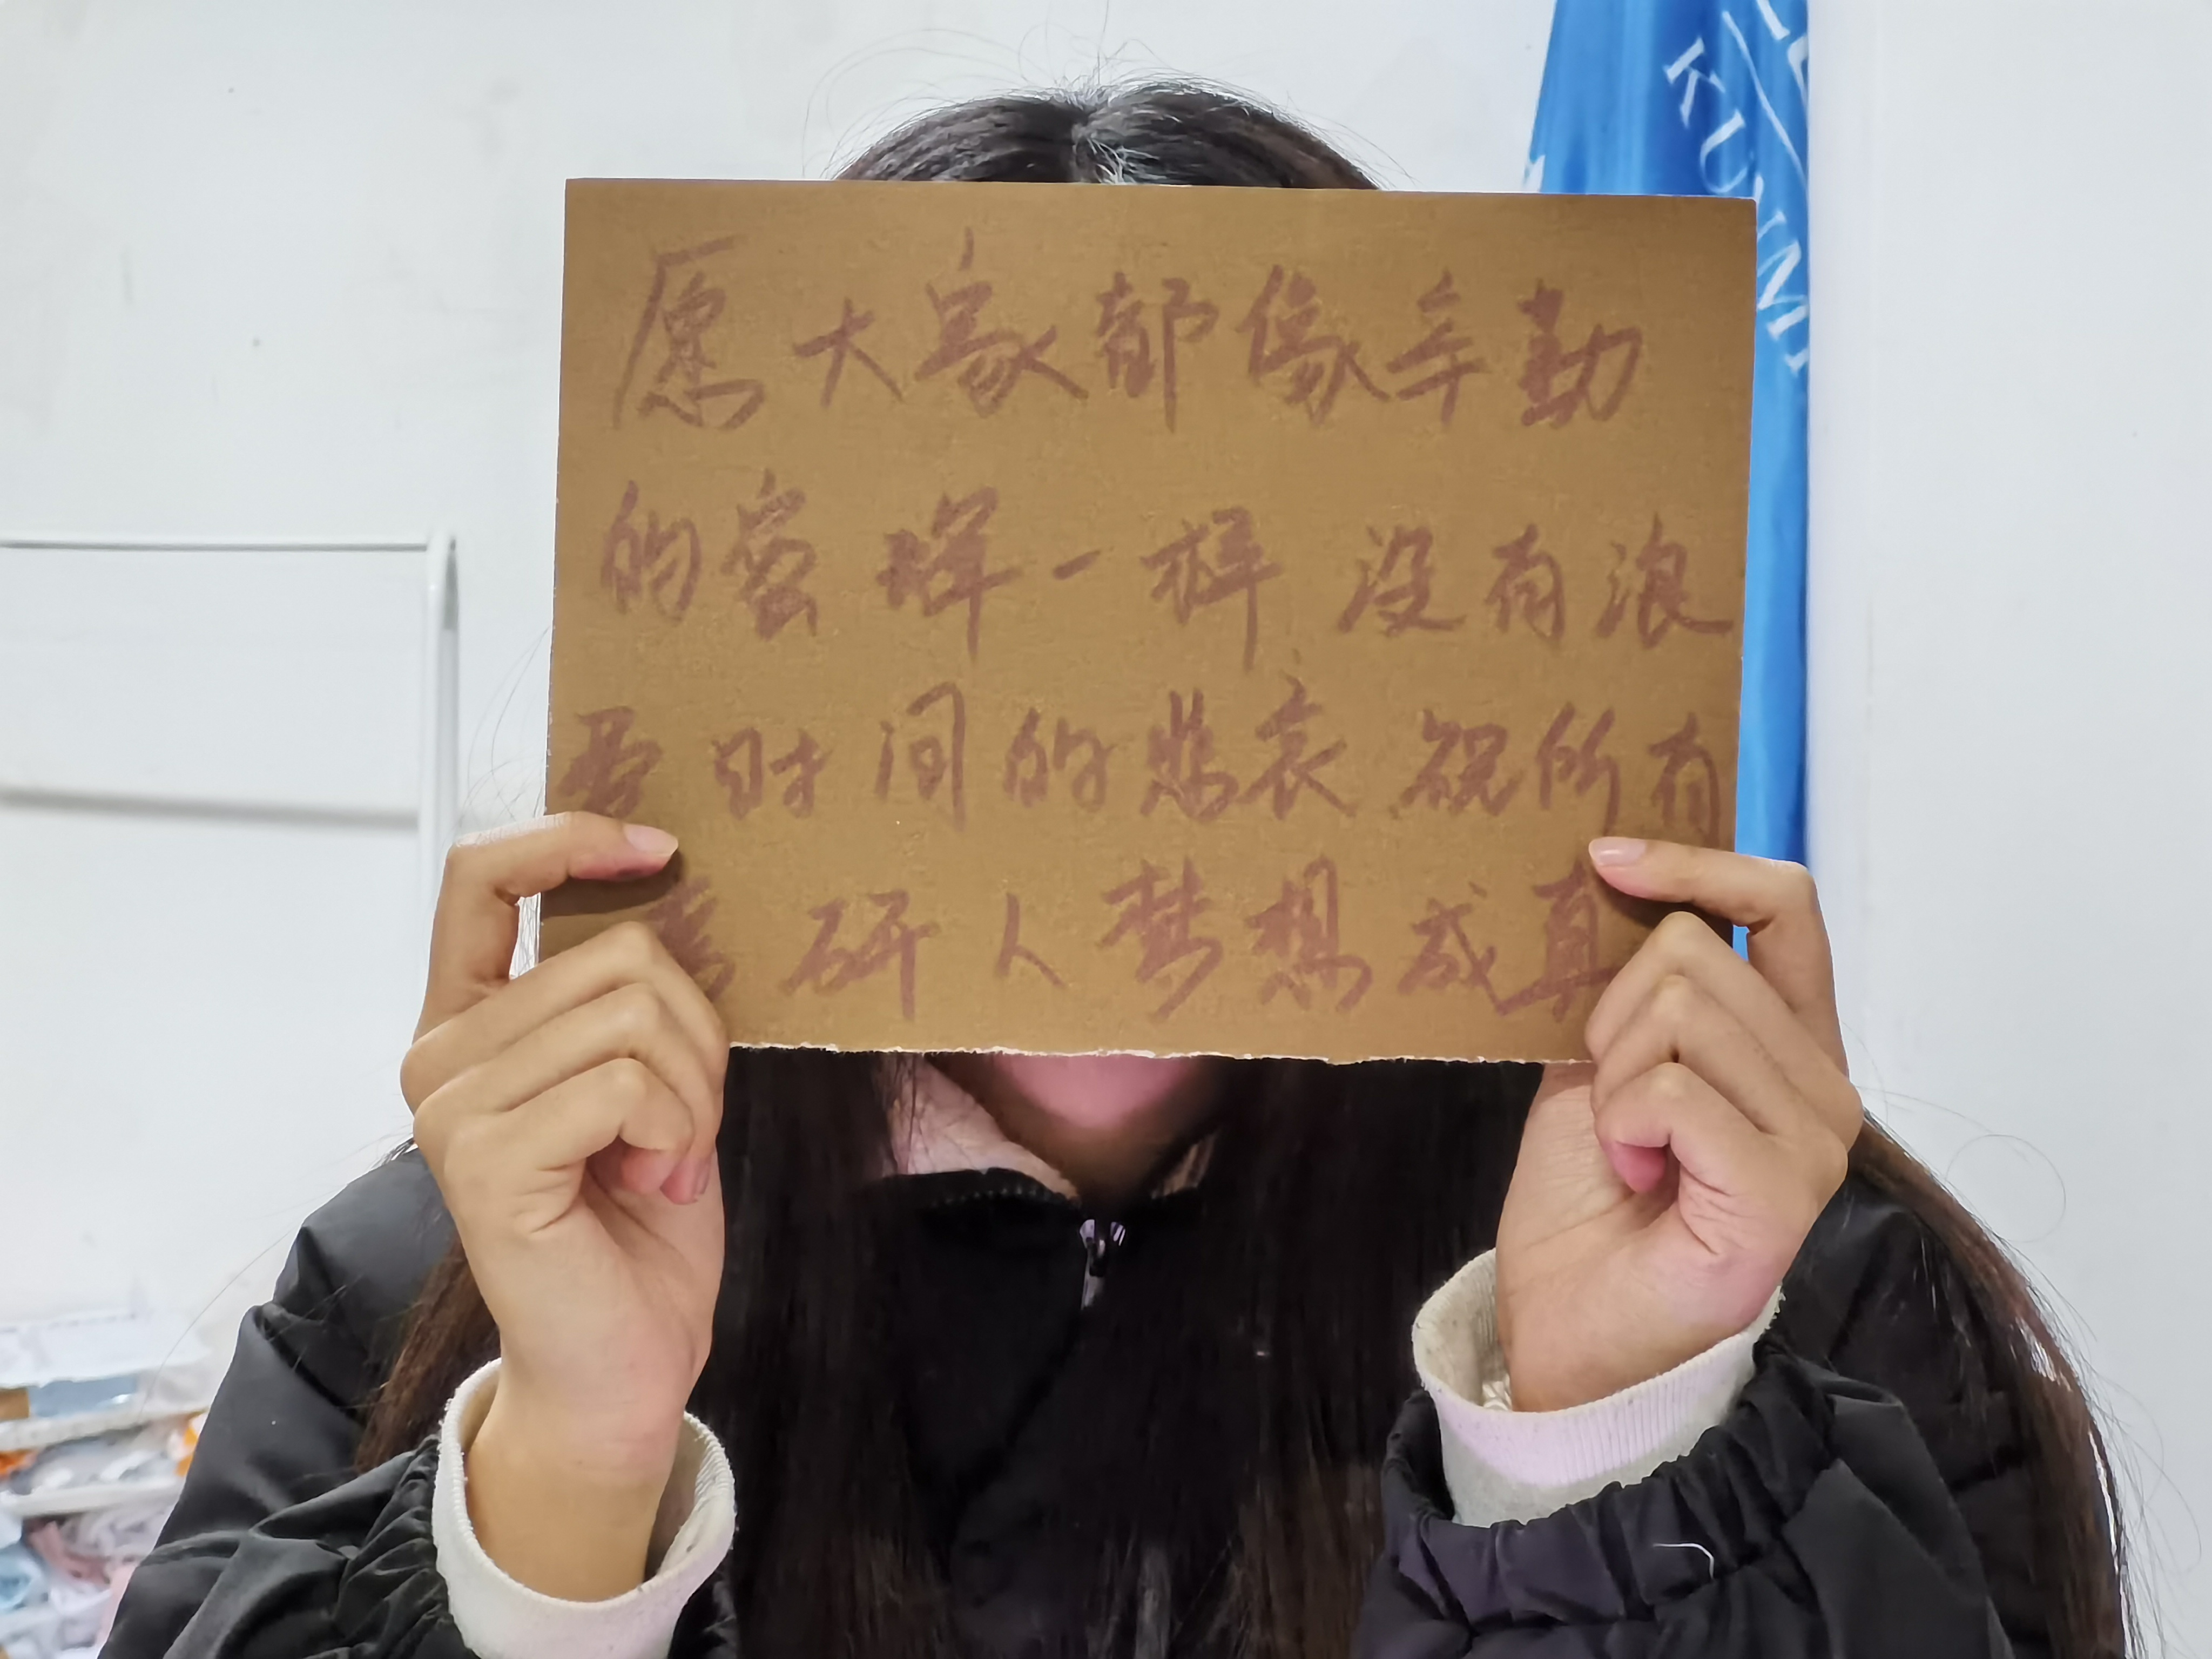 愿大家都像辛勤
的蜜蜂一样 没有浪
费时间的悲哀 祝所有
考研人梦想成真
KUNMI